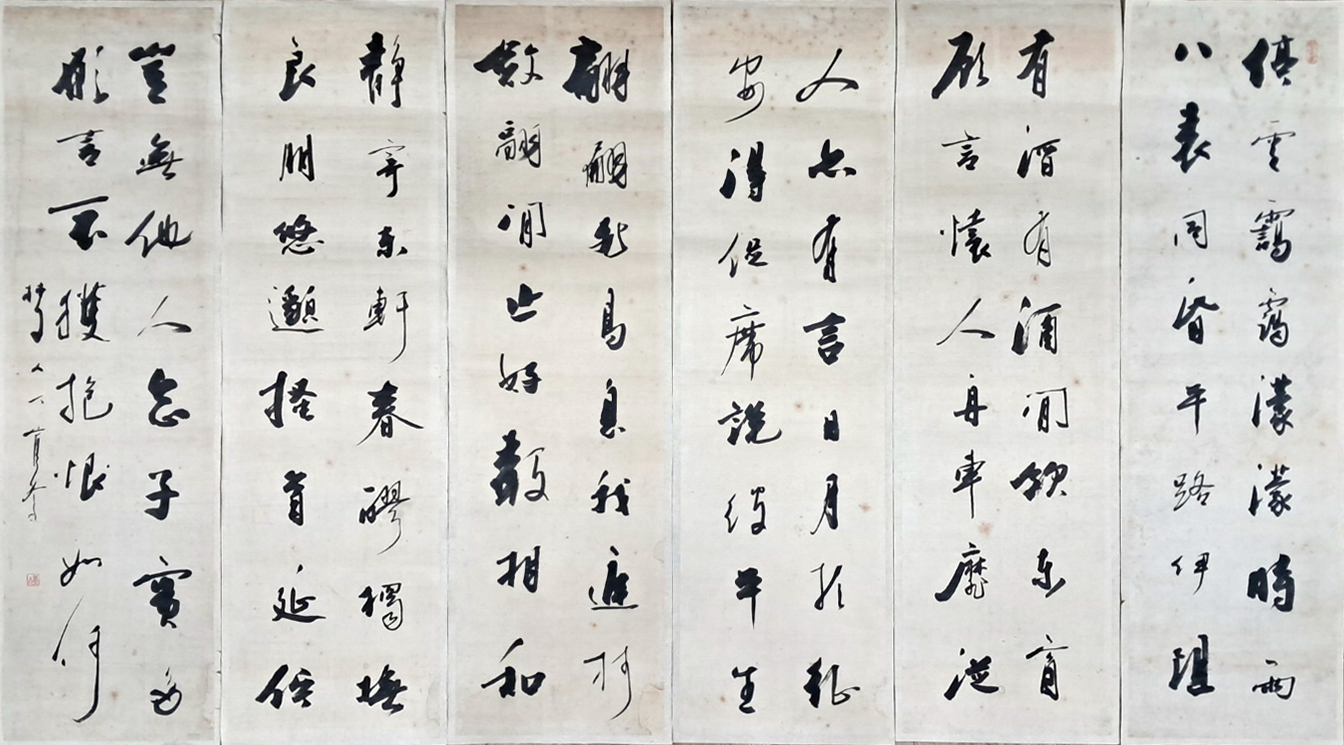 停雲靄靄濛濛時雨
八表同昏平路伊阻
有酒有酒閒飲東窗
願言懷人舟車靡從
人亦有言日月於征
安得促席說彼平生
翩翩飛鳥息我庭柯
斂翮閒止好聲相和
靜寄東軒春醪獨撫
良朋悠邈搔首延佇
豈無他人念子實多
願言不獲抱恨如何